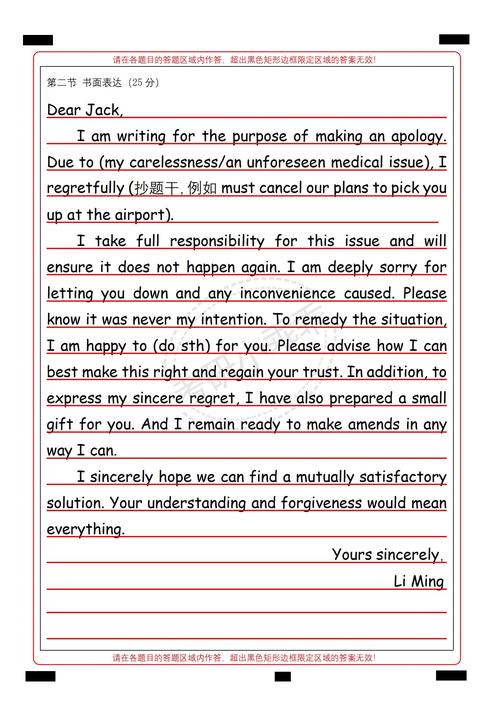 请在各题目的答题区域内作答,超出黑色矩形边框限定区域的答案无效!
第二节 书面表达 (25 分)
Dear Jack,
I am writing for the purpose of making an apology.
Due to (my carelessness/an unforeseen medical issue), I
regretfully (抄题干, 例如 must cancel our plans to pick you
up at the airport).
I take full responsibility for this issue and will
ensure it does not happen again. I am deeply sorry for
letting you down and any inconvenience caused. Please
know it was never my intention. To remedy the situation,
I am happy to (do sth) for you. Please advise how I can
best make this right and regain your trust. In addition, to
express my sincere regret, I have also prepared a small
gift for you. And I remain ready to make amends in any
way I can.
I sincerely hope we can find a mutually satisfactory
solution. Your understanding and forgiveness would mean
everything.
Yours sincerely,
Li Ming
请在各题目的答题区域内作答,超出黑色矩形边框限定区域的答案无效!